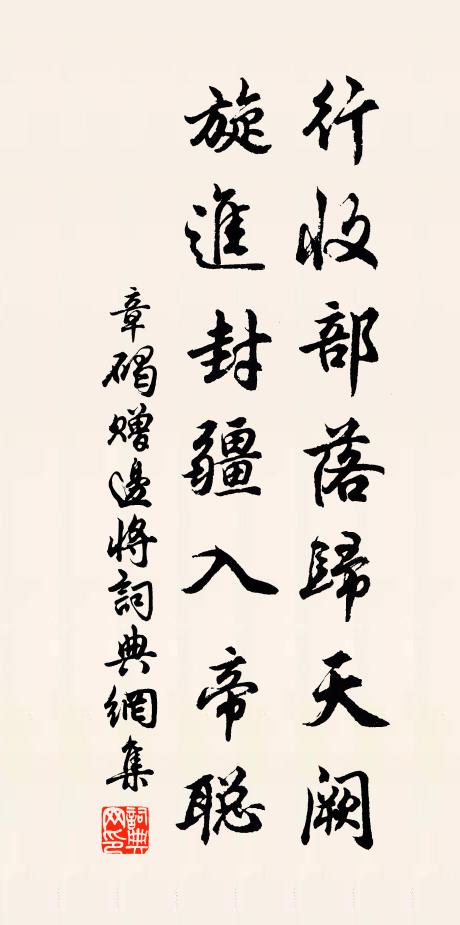 行收部落歸天闕
旋進封疆入帝聪
章碣贈邊將詞典網集
詞典网印